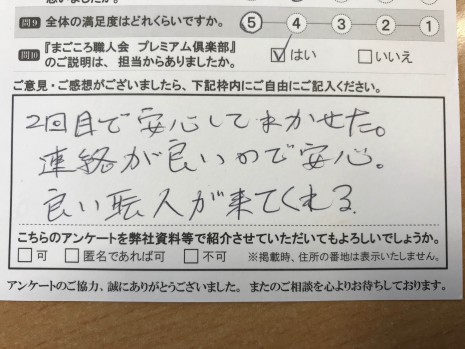 問9 全体の満足度はどれくらいですか。 5 4 3 2 1
問10 『まごころ職人会 プレミアム倶楽部』
のご説明は、担当からありましたか。 はい いいえ
ご意見・ご感想がございましたら、下記枠内にご自由にご記入ください。
2回目で安心してまかせた。
連絡が良いので安心。
良い職人が来てくれる
こちらのアンケートを弊社資料等で紹介させていただいてもよろしいでしょうか。
可 匿名であれば可 不可 ※掲載時、住所の番地は表示いたしません。
アンケートのご協力、誠にありがとうございました。 またのご相談を心よりお待ちしております。